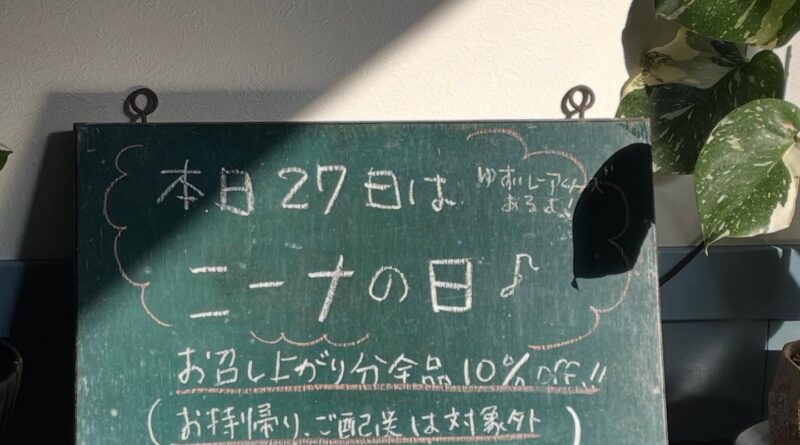 本日27日は
あるよ!
ニーナの日♪
お召し上がり分全品10%off!!
(お持帰り、ご配送は対象外)